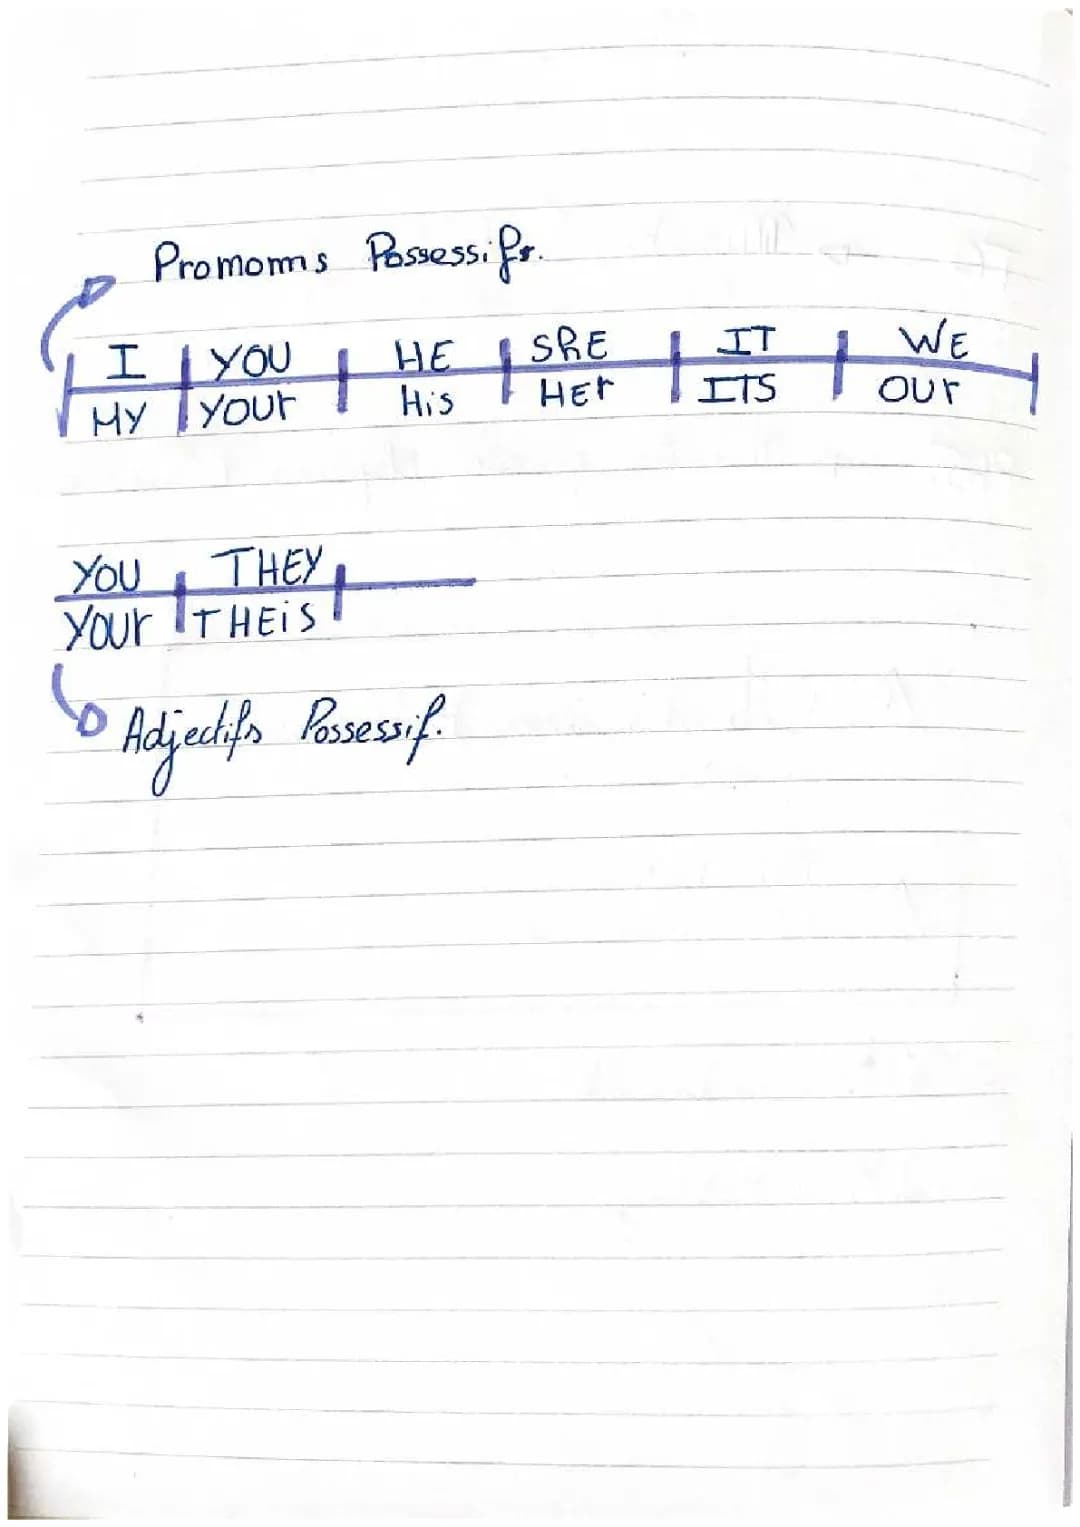 Pronoms Possessifs.
I YOU HE SHE IT WE
MY YOUr His HEr ITS OUr
YOU THEY
YOUr THEiS
Adjectifs Possessif.